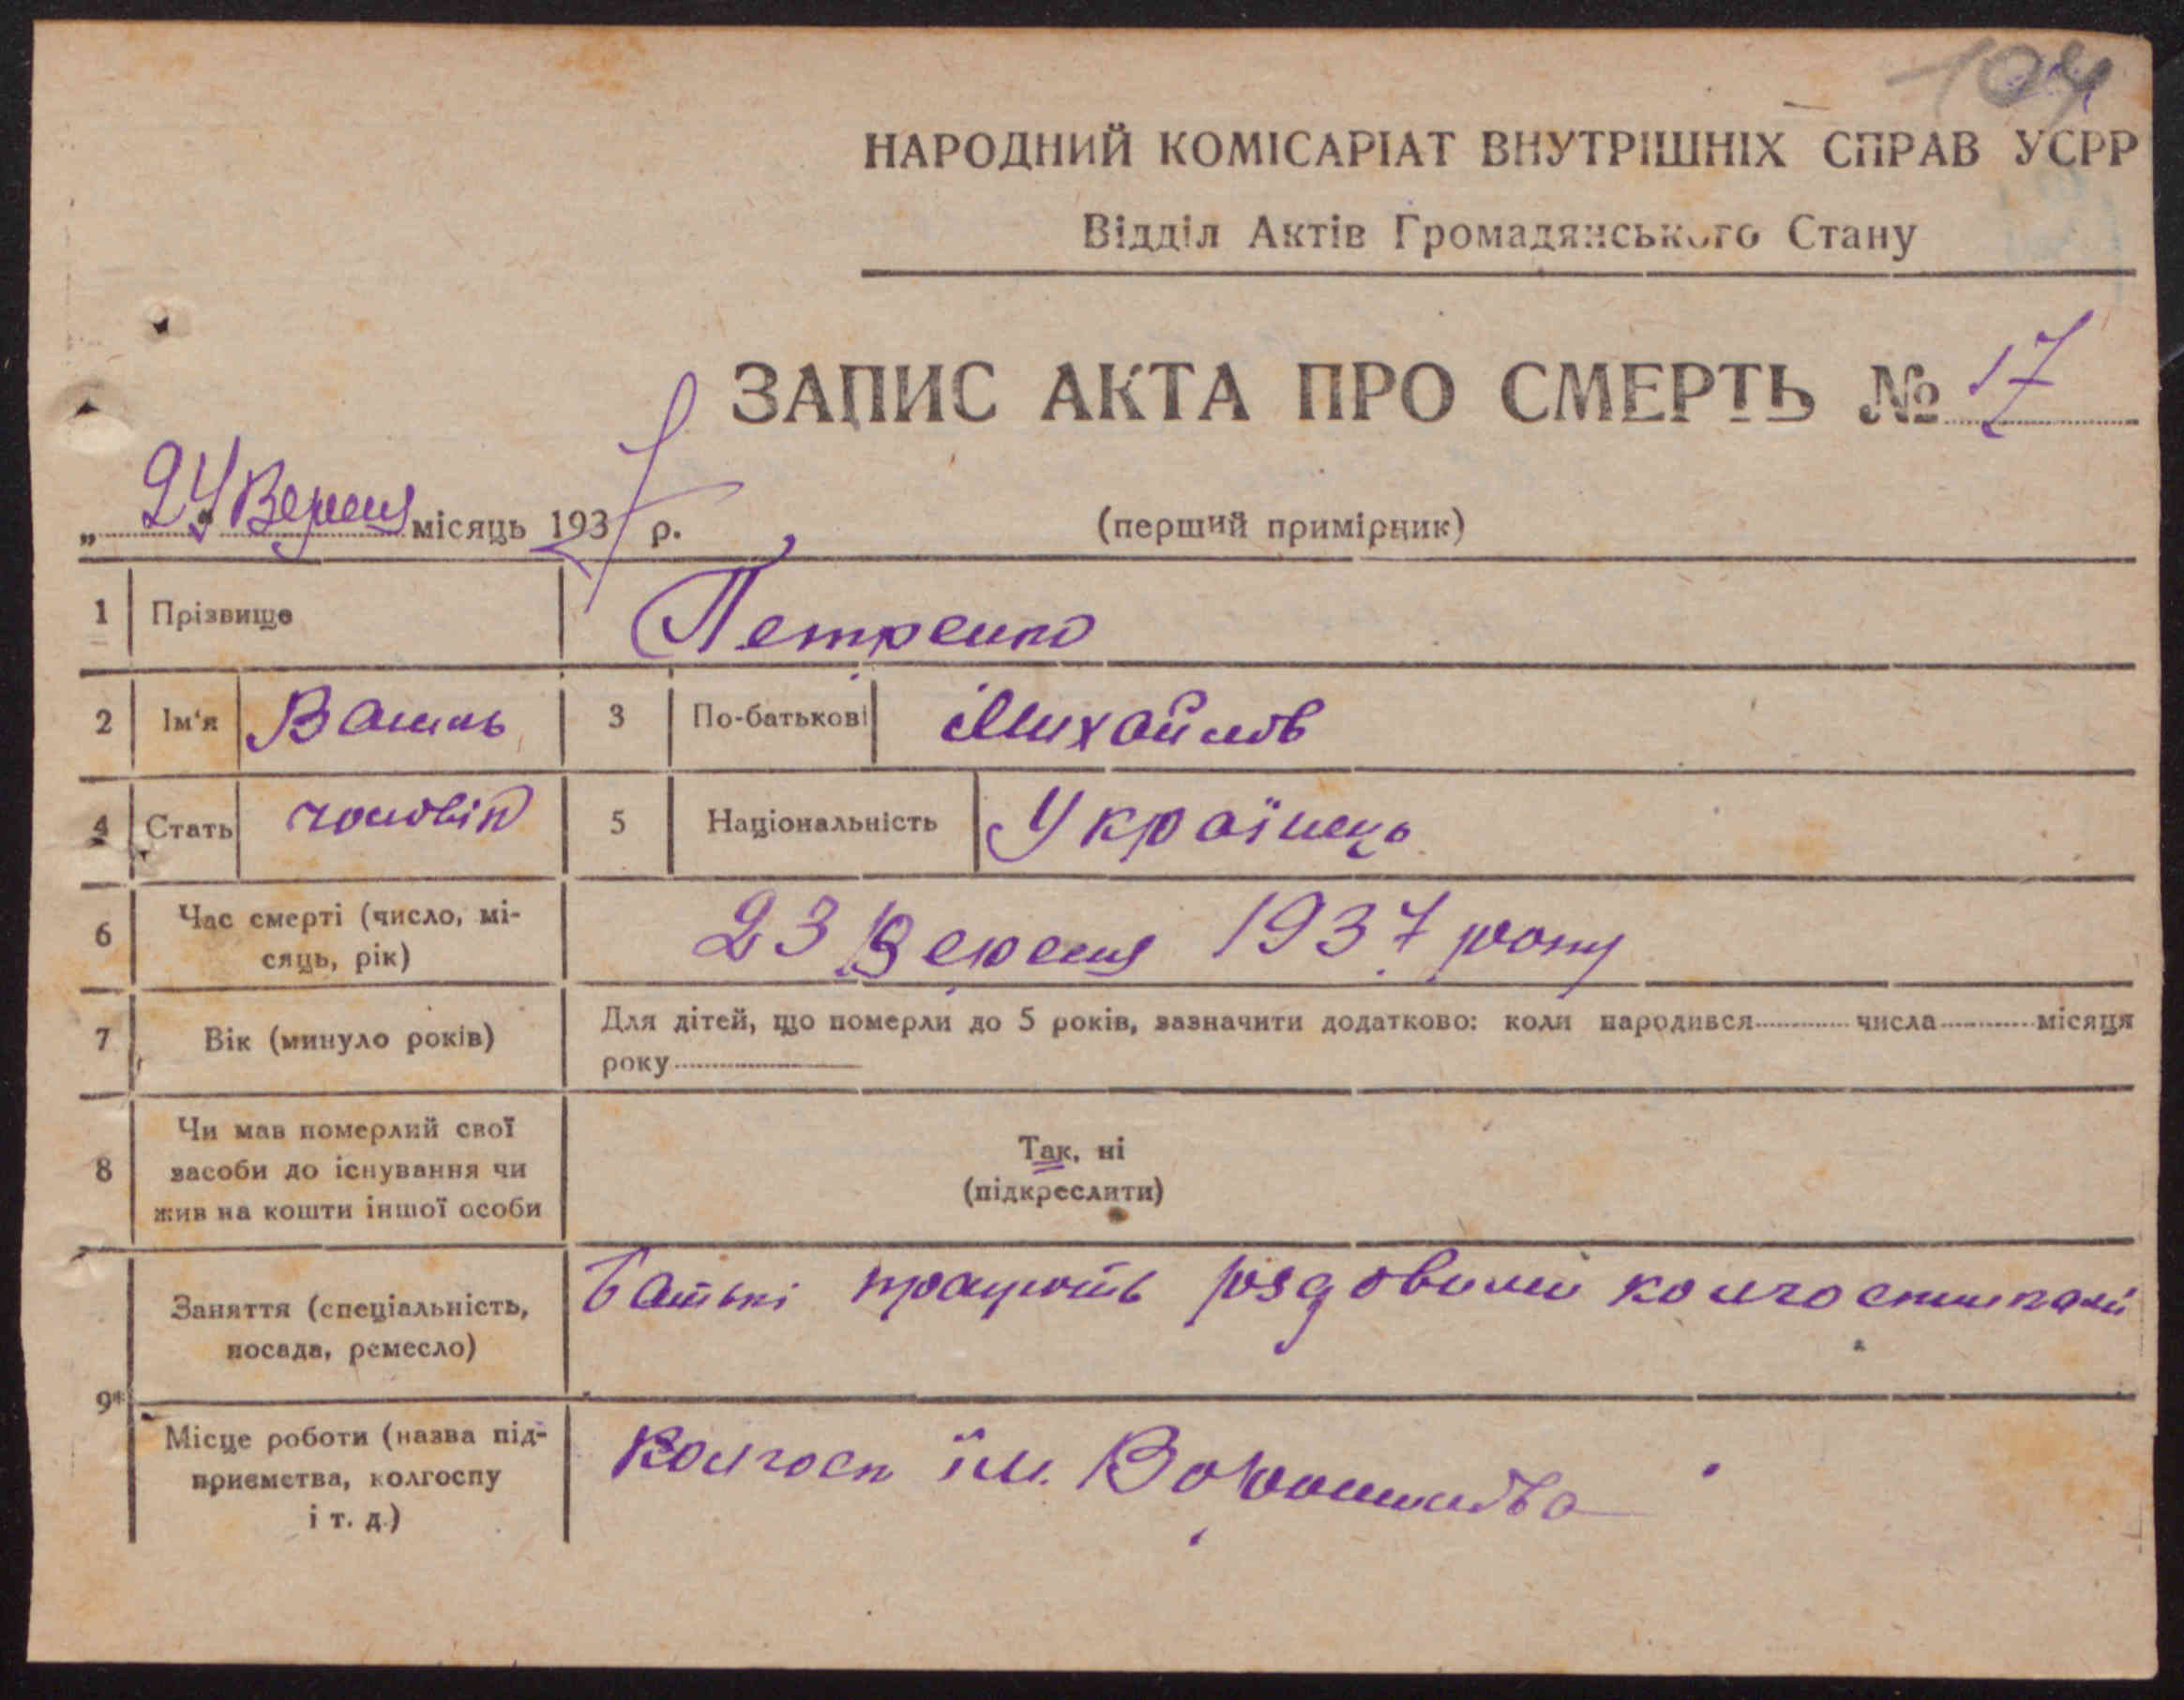 104
НАРОДНИЙ КОМІСАРІАТ ВНУТРІШНІХ СПРАВ УСРР
Відділ Актів Громадянського Стану
ЗАПИС АКТА ПРО СМЕРТЬ № 17
„ 24 " Вересня місяць 1937 р.
(перший примірник)
1 Прізвище Петренко
2 Ім'я Василь 3 По-батькові Михайлов
4 Стать чоловік 5 Національність Українець
6 Час смерті (число, мі-
сяць, рік) 23 Вересня 1937 року
7 Вік (минуло років) Для дітей, що померли до 5 років, зазначити додатково: коли народився числа місяця
року
8 Чи мав померлий свої
засоби до існування чи
жив на кошти іншої особи
Так, ні
(підкреслити)
9* Заняття (спеціальність,
посада, ремесло) батькі працують рядовими колгоспниками
Місце роботи (назва під-
приємства, колгоспу
і т. д.) Колгосп їм. Ворошилова